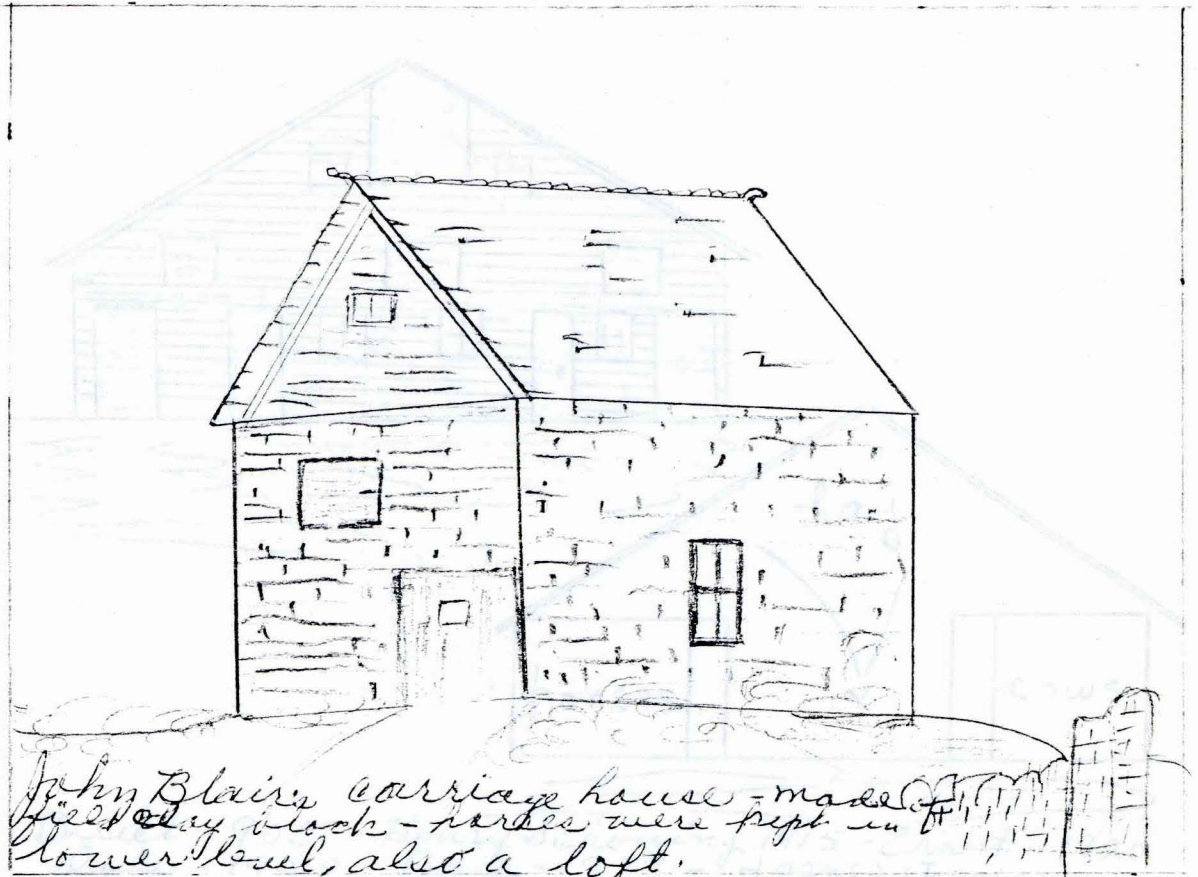 John Blair's carriage house - made of
clay block - horses were kept in
lower level, also a loft.